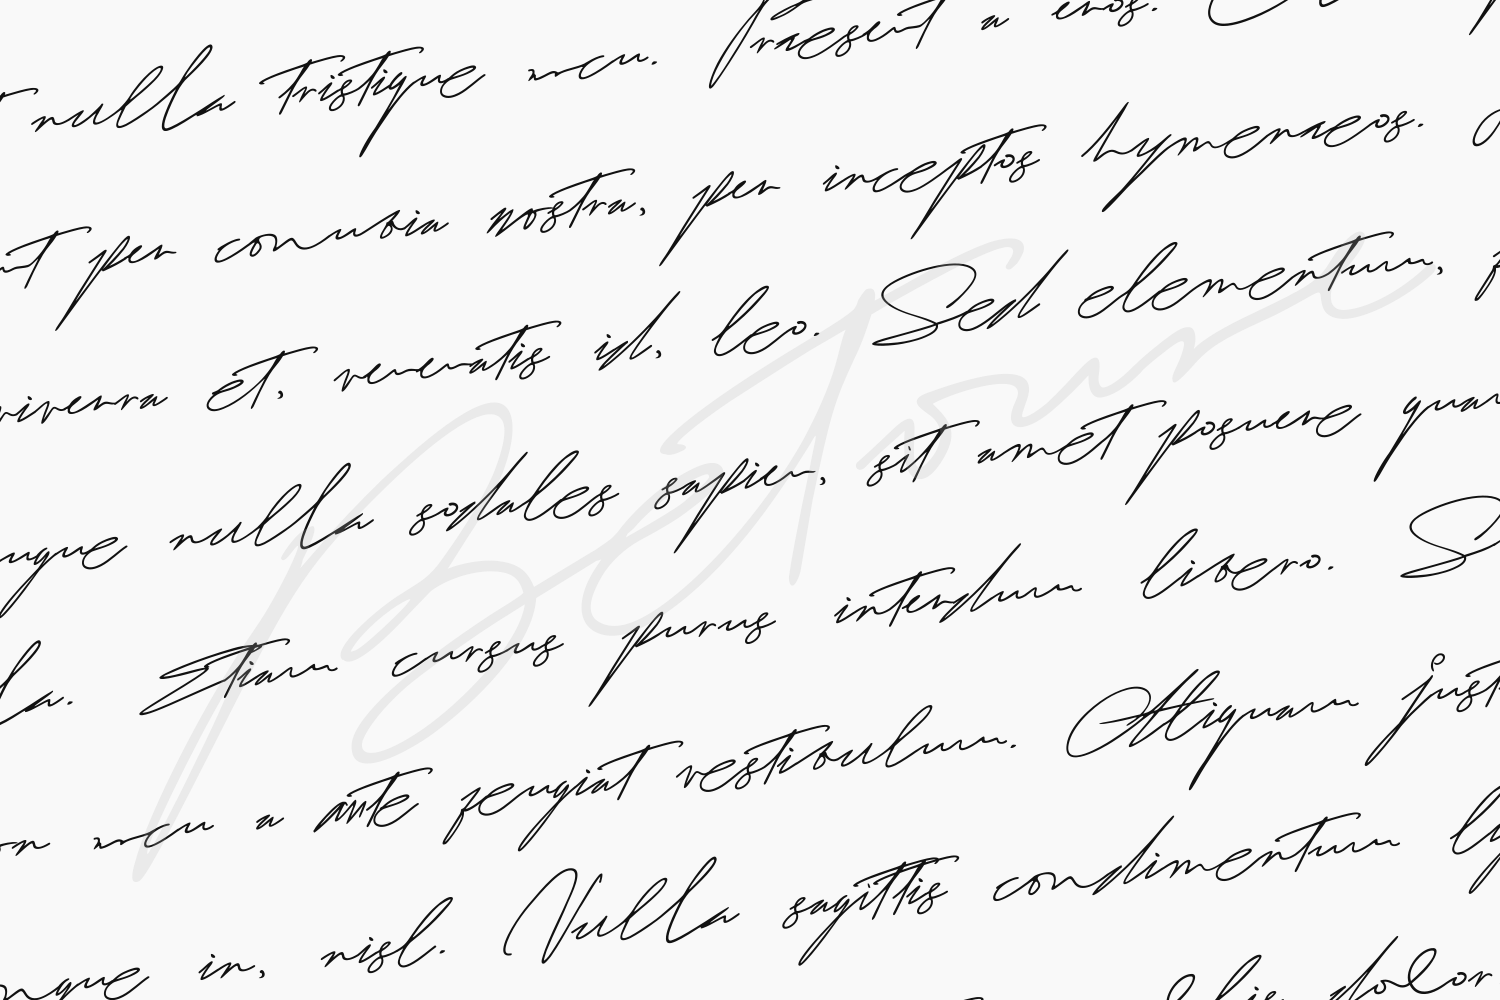 nulla tristique arcu. Praesent a eros.
per conubia nostra, per inceptos hymenaeos.
viverra et, venenatis id, leo. Sed elementum,
nulla sodales sapien, sit amet posuere
Etiam cursus purus interdum libero.
arcu a ante feugiat vestibulum. Aliquam
in, nisl. Nulla sagittis condimentum
dolor